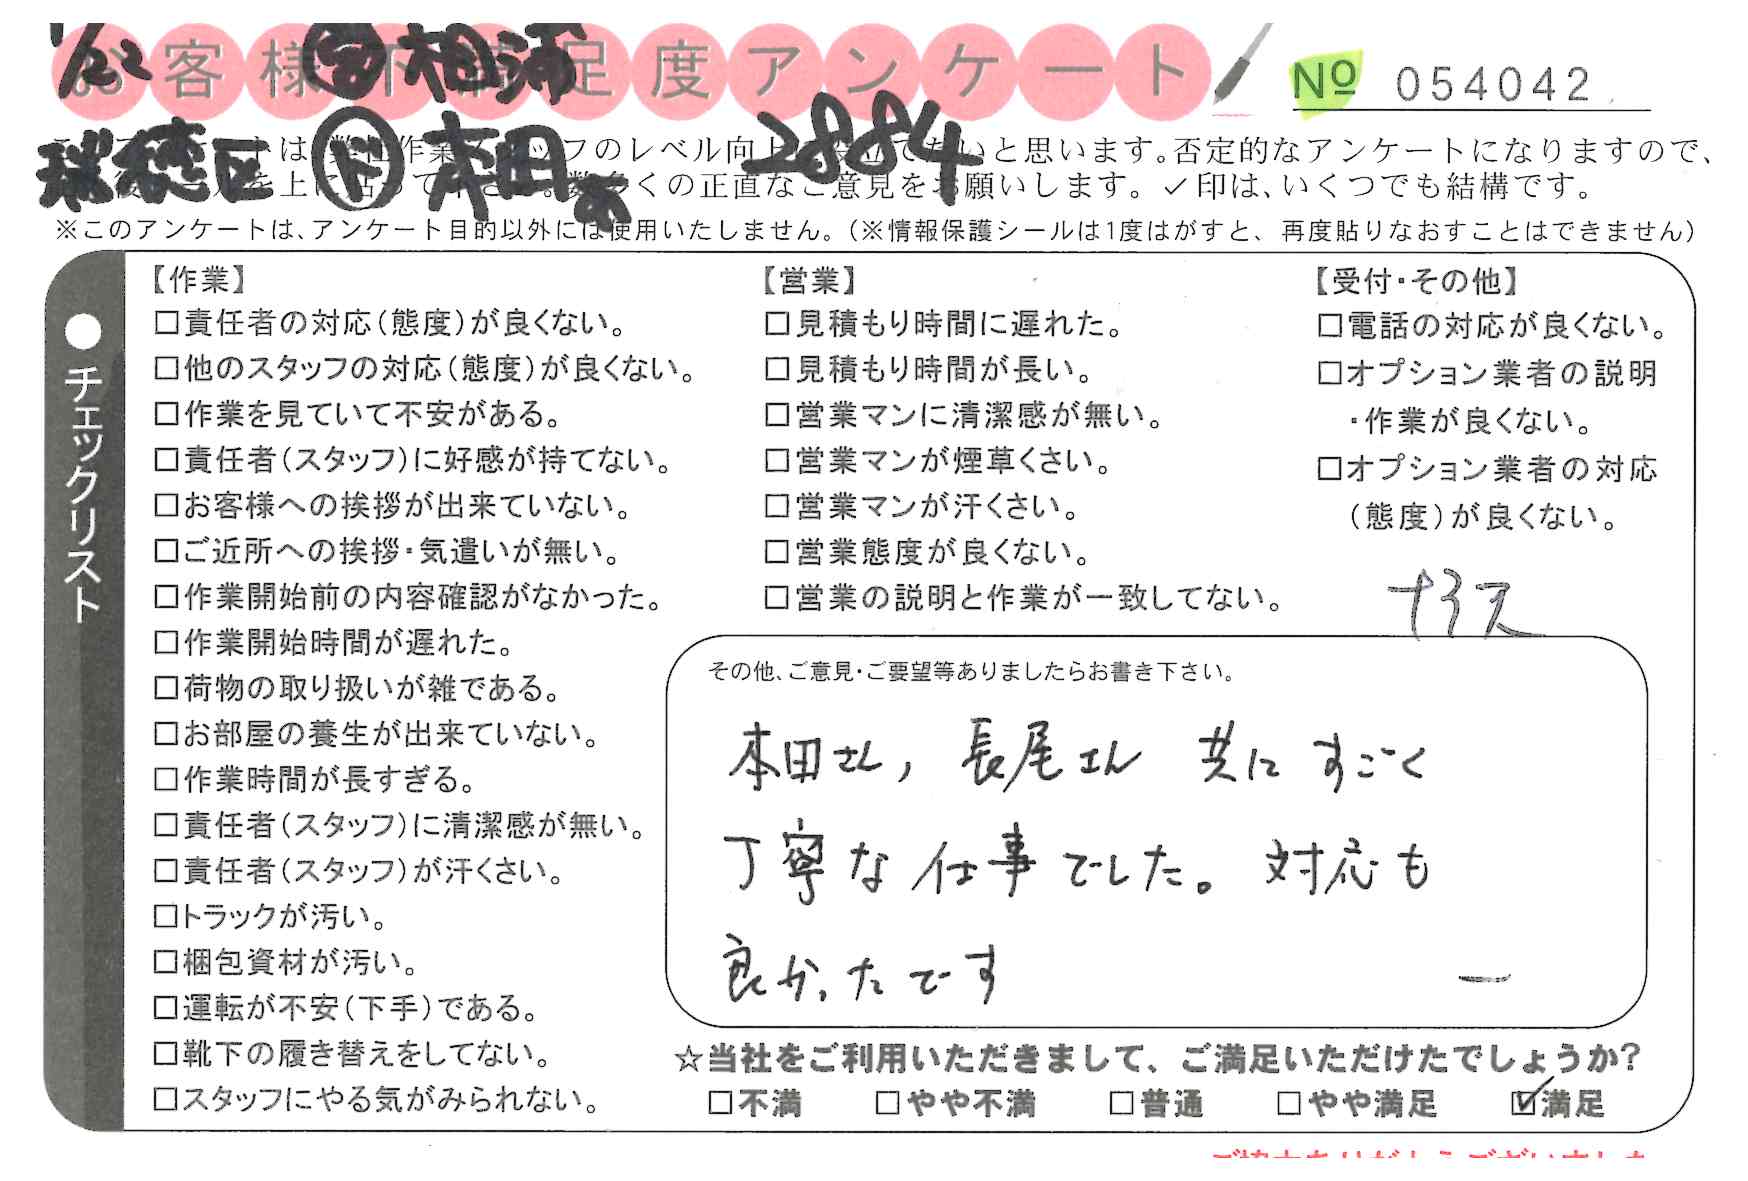 1/22 営 相河
お客様不満足度アンケート
No 054042
瑞穂区 ド 本田 2884
は、弊社作業スタッフのレベル向上に役立てたいと思います。否定的なアンケートになりますので、
を上に貼って下さい。数多くの正直なご意見をお願いします。✓印は、いくつでも結構です。
※このアンケートは、アンケート目的以外には使用いたしません。(※情報保護シールは1度はがすと、再度貼りなおすことはできません)
●チェックリスト
【作業】
□責任者の対応(態度)が良くない。
□他のスタッフの対応(態度)が良くない。
□作業を見ていて不安がある。
□責任者(スタッフ)に好感が持てない。
□お客様への挨拶が出来ていない。
□ご近所への挨拶・気遣いが無い。
□作業開始前の内容確認がなかった。
□作業開始時間が遅れた。
□荷物の取り扱いが雑である。
□お部屋の養生が出来ていない。
□作業時間が長すぎる。
□責任者(スタッフ)に清潔感が無い。
□責任者(スタッフ)が汗くさい。
□トラックが汚い。
□梱包資材が汚い。
□運転が不安(下手)である。
□靴下の履き替えをしてない。
□スタッフにやる気がみられない。
【営業】
□見積もり時間に遅れた。
□見積もり時間が長い。
□営業マンに清潔感が無い。
□営業マンが煙草くさい。
□営業マンが汗くさい。
□営業態度が良くない。
□営業の説明と作業が一致してない。
【受付・その他】
□電話の対応が良くない。
□オプション業者の説明
・作業が良くない。
□オプション業者の対応
(態度)が良くない。
その他、ご意見・ご要望等ありましたらお書き下さい。
本田さん, 長尾さん 共に すごく
丁寧な仕事でした。対応も
良かったです
☆当社をご利用いただきまして、ご満足いただけたでしょうか?
□不満 □やや不満 □普通 □やや満足 ☑満足